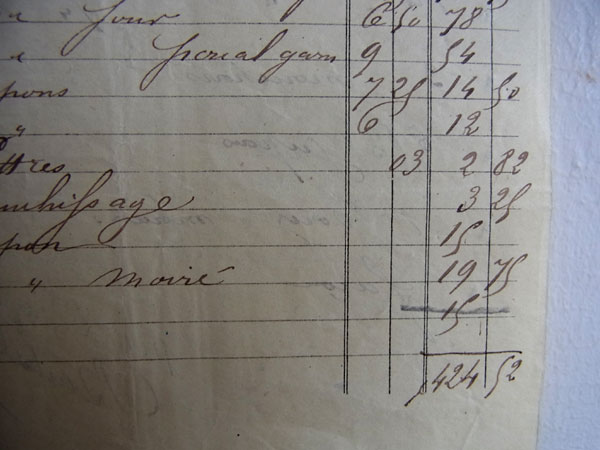 " jour 6 50 78
" 9 54
pons 7 25 14 50
" 6 12
ttres 03 2 82
nchissage 3 25
pon 15
" moiré 19 75
15
424 52